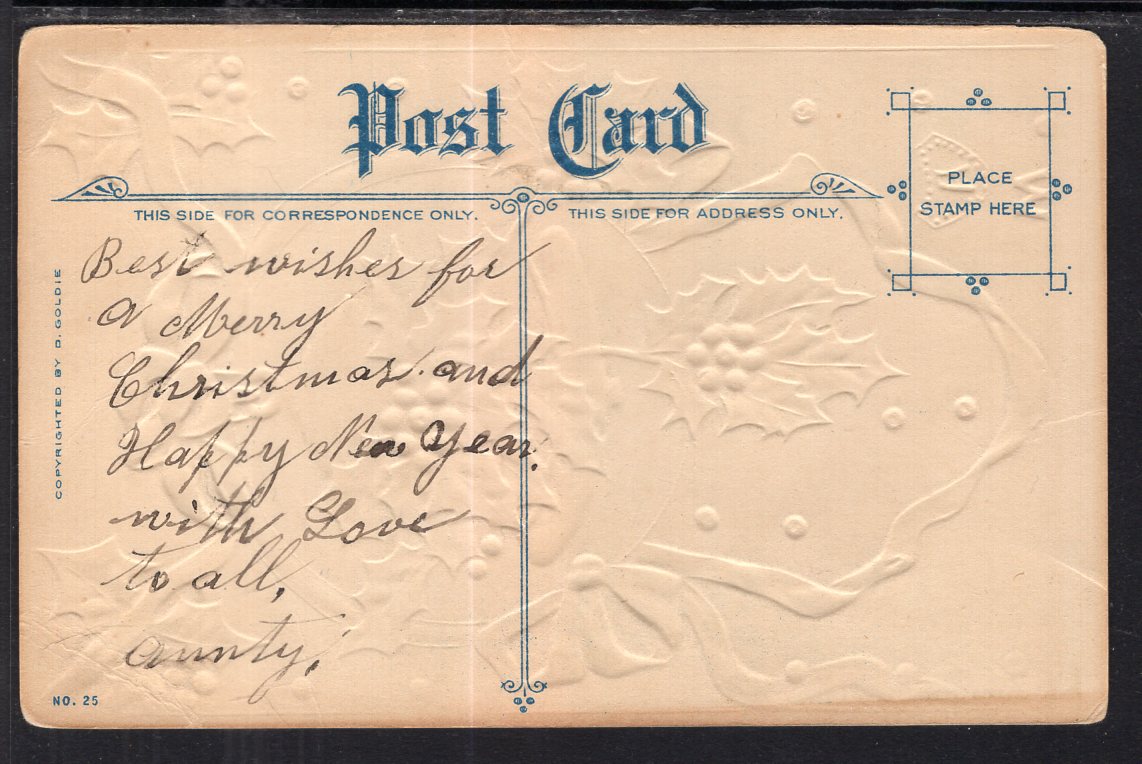 Post Card
THIS SIDE FOR CORRESPONDENCE ONLY.
THIS SIDE FOR ADDRESS ONLY.
PLACE
STAMP HERE
Best wishes for
a Merry
Christmas and
Happy New Year.
with Love
to all,
aunty,
COPYRIGHTED BY D. GOLDIE
NO. 25